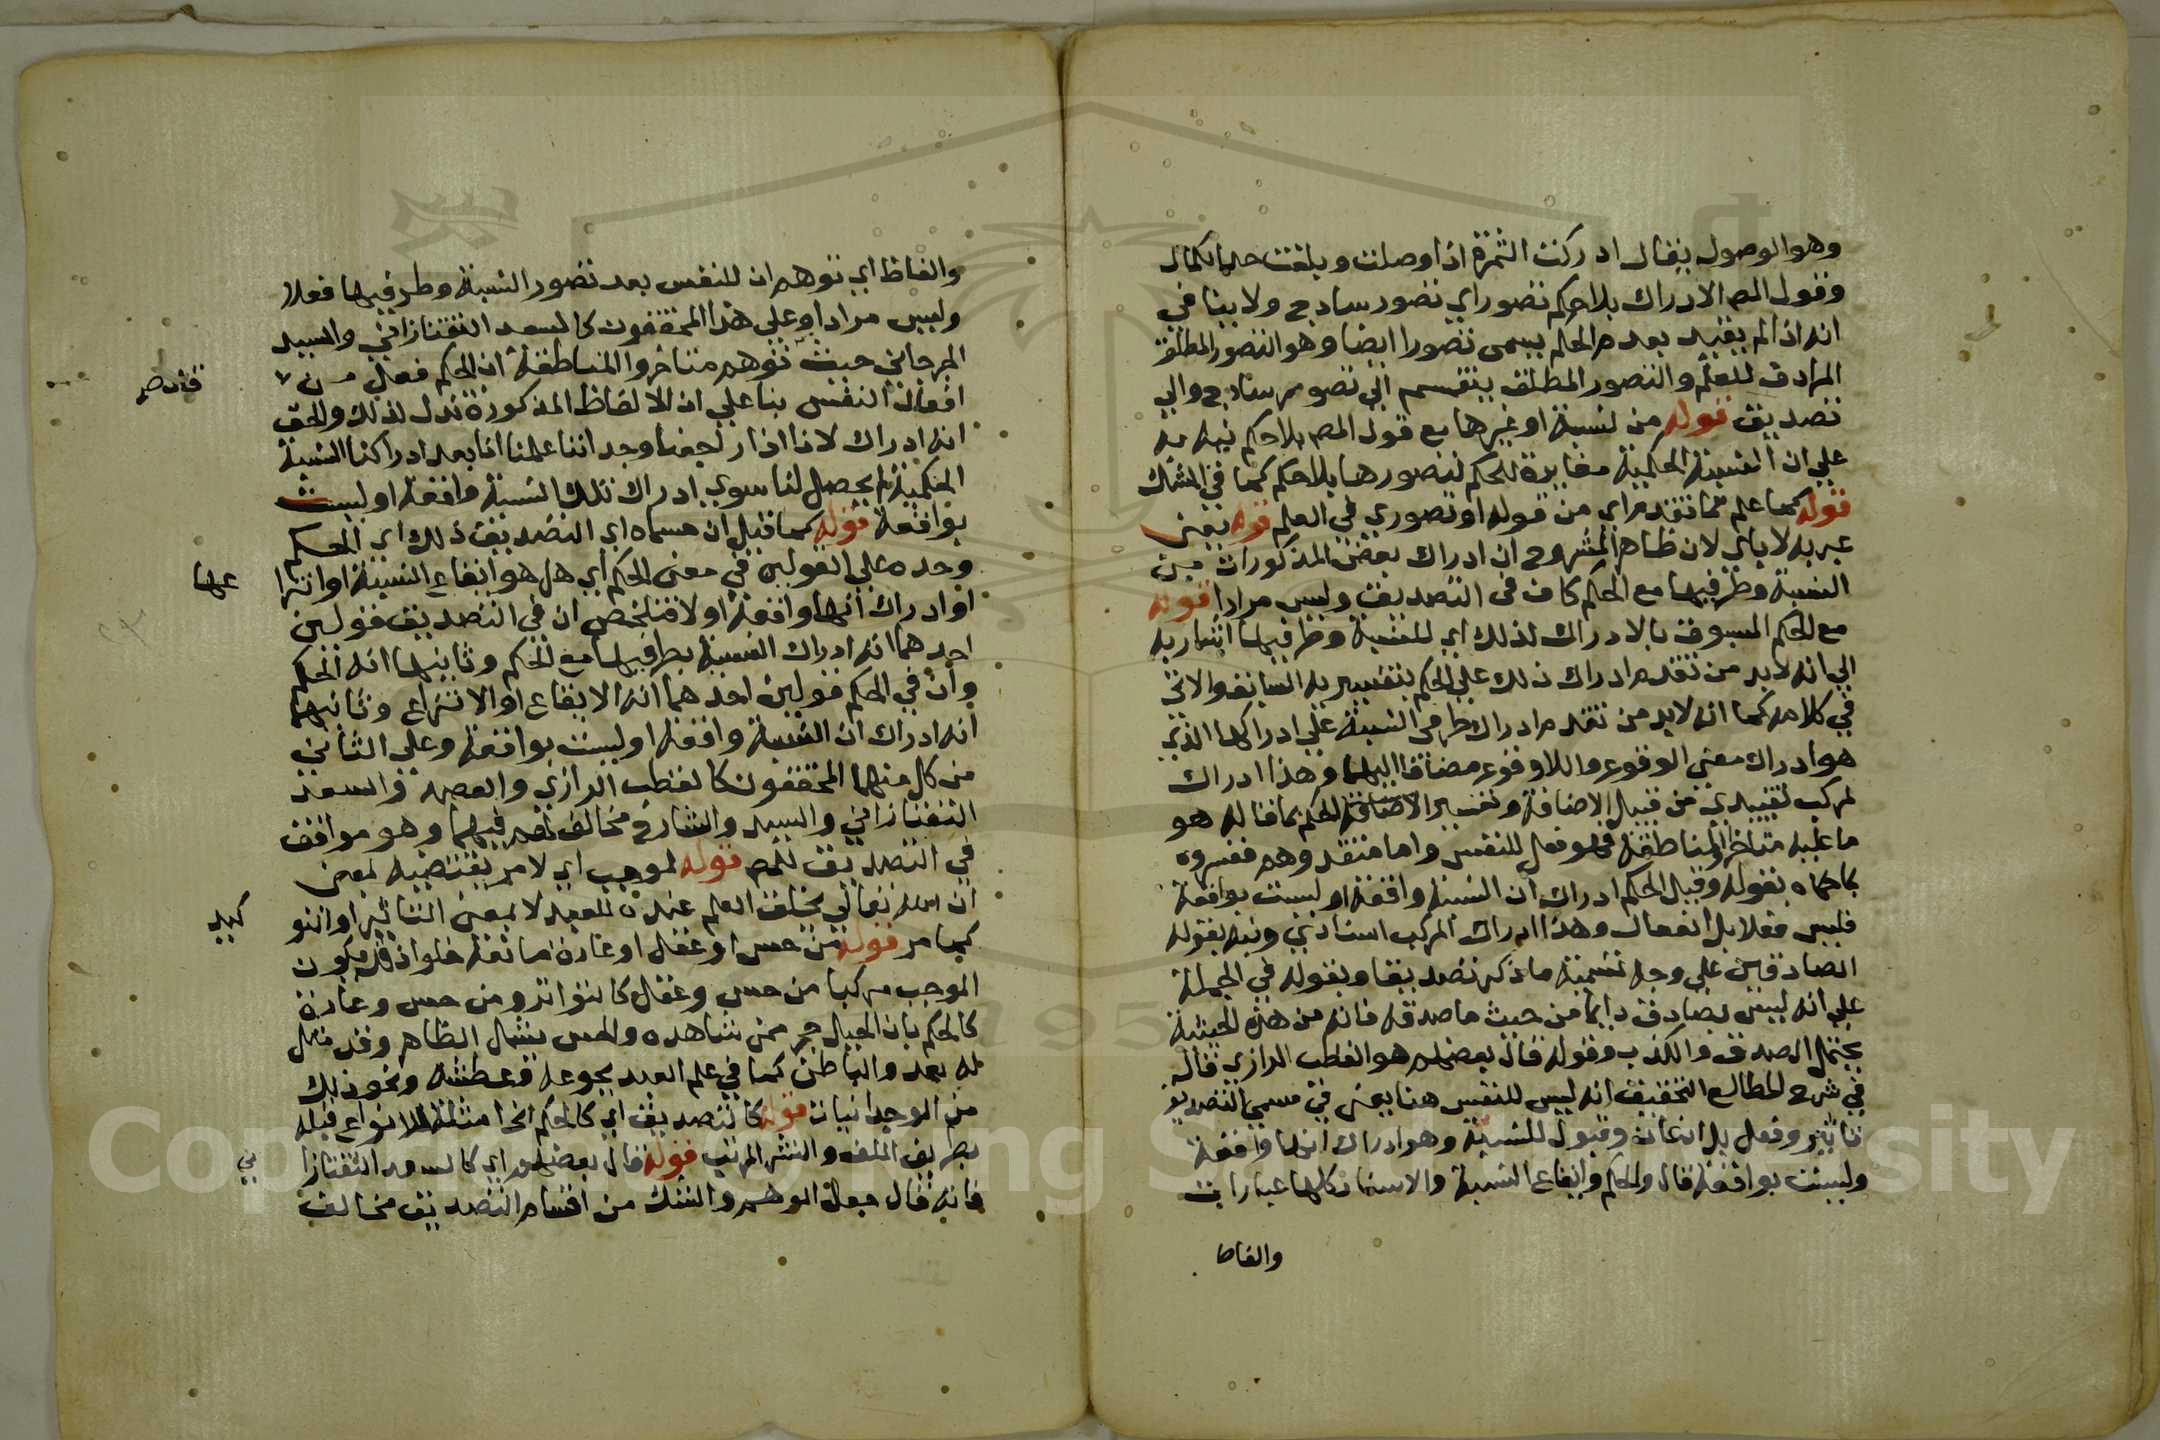 وهو الوصول يقال ادركت الثمرة اذا وصلت وبلغت حد الكمال
وقول المص الادراك بلا حكم تصور اي تصور ساذج ولا ينافي
انه اذا لم يقيد بعدم الحكم يسمى تصورا ايضا وهو التصور المطلق
المرادف للعلم والتصور المطلق ينقسم الي تصور ساذج والي
تصديق قوله من نسبة او غيرها مع قول المص بلا حكم نبه به
علي ان النسبة الحكمية مغايرة للحكم لتصورها بلا حكم كما في الشك
قوله كما علم مما تقدم اي من قوله او تصوري في العلم قوله يعني
عبر به لا باي لان ظاهر المشروح ان ادراك بعض المذكورات من
النسبة وطرفيها مع الحكم كاف في التصديق وليس مرادا قوله
مع الحكم المسبوق بالادراك لذلك اي للنسبة وطرفيها اشار به
الي انه لا بد من تقدم ادراك ذلك علي الحكم بتفسيريه السابق والاتي
في كلامه كما انه لا بد من تقدم ادراك طرفي النسبة علي ادراكها الذي
هو ادراك معنى الوقوع واللاوقوع مضافا اليها وهذا ادراك
لمركب تقييدي من قبيل الاضافة وتفسير الحكم بما قاله هو
ما عليه متاخرو المناطقة فهو فعل للنفس واما متقدموهم ففسروه
بما حكاه بقوله وقيل الحكم ادراك ان النسبة واقعة او ليست بواقعة
فليس فعلا بل انفعال وهذا ادراك لمركب اسنادي ونبه بقوله
الصادقين علي وجه تسمية ما ذكر تصديقا وبقوله في الجملة
علي انه ليس بصادق دايما من حيث ما صدقه فانه من هذه الحيثية
يحتمل الصدق والكذب وقوله قال بعضهم هو القطب الرازي قال
في شرح المطالع التحقيق انه ليس للنفس هنا يعني في مسمي التصديق
تاثير وفعل بل اذعان وقبول للنسبة وهو ادراك انها واقعة
وليست بواقعة قال والحكم وايقاع النسبة والاسناد كلها عبارات
والفاظ
والفاظ اي توهم ان للنفس بعد تصور النسبة وطرفيها فعلا
وليس مرادا وعلي هذا المحققون كالسعد التفتازاني والسيد
الجرجاني حيث توهم متاخروا المناطقة ان الحكم فعل من
افعال النفس بنا علي ان الالفاظ المذكورة تدل لذلك والحق
انه ادراك لانا اذا راجعنا وجداننا علمنا انا بعد ادراكنا النسبة
الحكمية لم يحصل لنا سوي ادراك تلك النسبة واقعة او ليست
بواقعة قوله كما قيل ان مسماه اي التصديق ذلك اي الحكم
وحده علي القولين في معنى الحكم اي هل هو ايقاع النسبة او انتزا
عها
او ادراك انها واقعة او لا فتلخص ان في التصديق قولين
احدهما انه ادراك النسبة بطرفيها مع الحكم وثانيهما انه الحكم
وان في الحكم قولين احدهما انه الايقاع او الانتزاع وثانيهما
انه ادراك ان النسبة واقعة او ليست بواقعة وعلي الثاني
من كل منهما المحققون كالقطب الرازي والعضد والسعد
التفتازاني والسيد والشارح مخالف لهم فيهما وهو موافق
في التصديق للمص قوله لموجب اي لامر يقتضيه لمعنى
ان الله تعالي يخلق العلم عنده للعبد لا بمعني التاثير او التو
ليد
كما مر قوله من حس او عقل او عادة مانعة خلو اذ قد يكون
الموجب مركبا من حس وعقل كالتواتر ومن حس وعادة
كالحكم بان الجبل حجر ممن شاهده والحس يشمل الظاهر وقد مثل
له بعد والباطن كما في علم العبد بجوعه وعطشه ونحو ذلك
من الوجدانيات قوله كالتصديق اي كالحكم الخ امثلة للانواع قبله
بطريق اللف والنشر المرتب قوله قال بعضهم اي كالسعد التفتازا
ني
فانه قال جعل الوهم والشك من اقسام التصديق مخالف